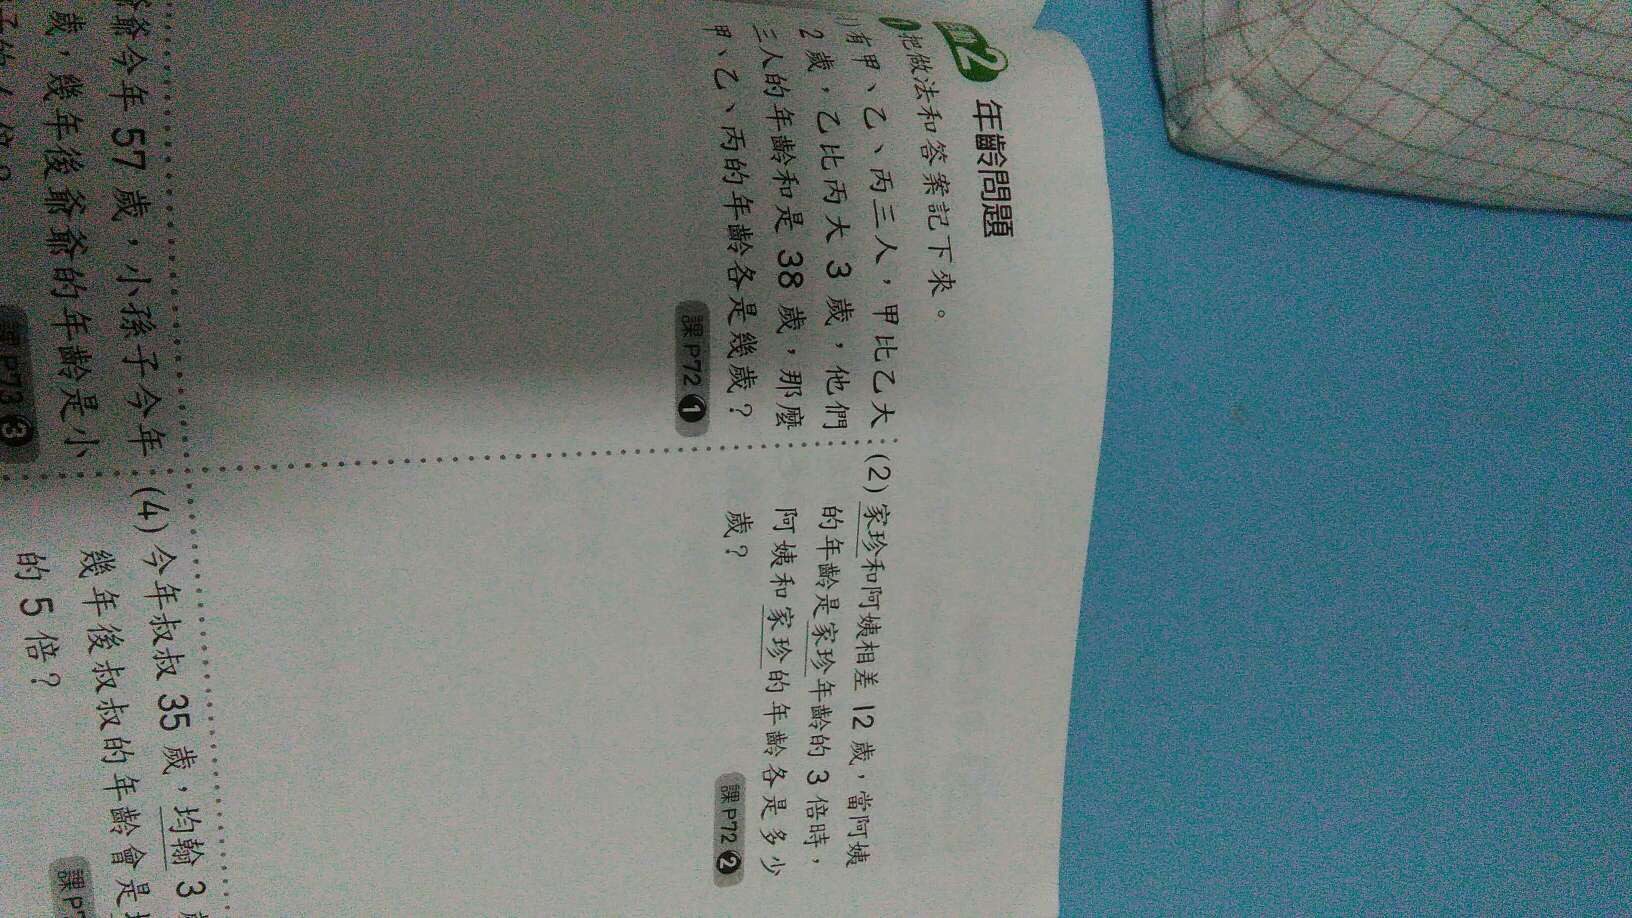 2 年齡問題
把做法和答案記下來。
(1)有甲、乙、丙三人，甲比乙大
2歲，乙比丙大3歲，他們
三人的年齡和是38歲，那麼
甲、乙、丙的年齡各是幾歲？
課P72 1
(2)家珍和阿姨相差12歲，當阿姨
的年齡是家珍年齡的3倍時，
阿姨和家珍的年齡各是多少
歲？
課P72 2
爺今年57歲，小孫子今年
歲，幾年後爺爺的年齡是小
課P73 3
(4)今年叔叔35歲，均翰3
幾年後叔叔的年齡會是
的5倍？
課P7